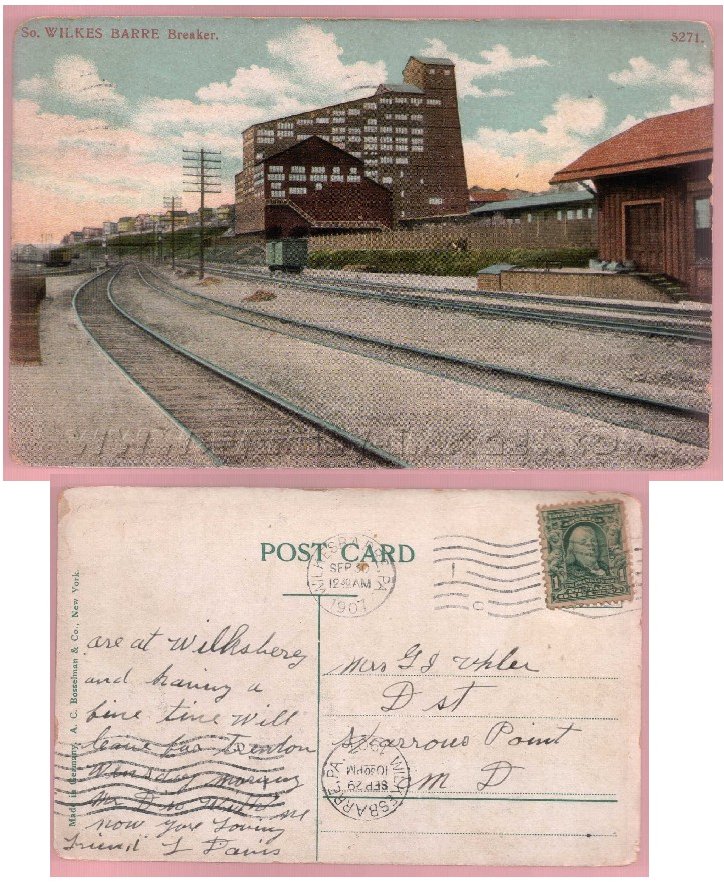 So. WILKES BARRE Breaker.
5271.
POST CARD
WILKESBARRE, PA.
SEP 30
12-30AM
1907
Made in Germany. A. C. Bosselman & Co., New York.
are at Wilksberg
and having a
fine time Will
leave for Trenton
Wensday morning
Mr D is with me
now your loving
Friend L Davis
Mrs G J Uhler
D st
Sparrows Point
M D
WILKESBARRE, PA.
SEP 29
10-30PM
1